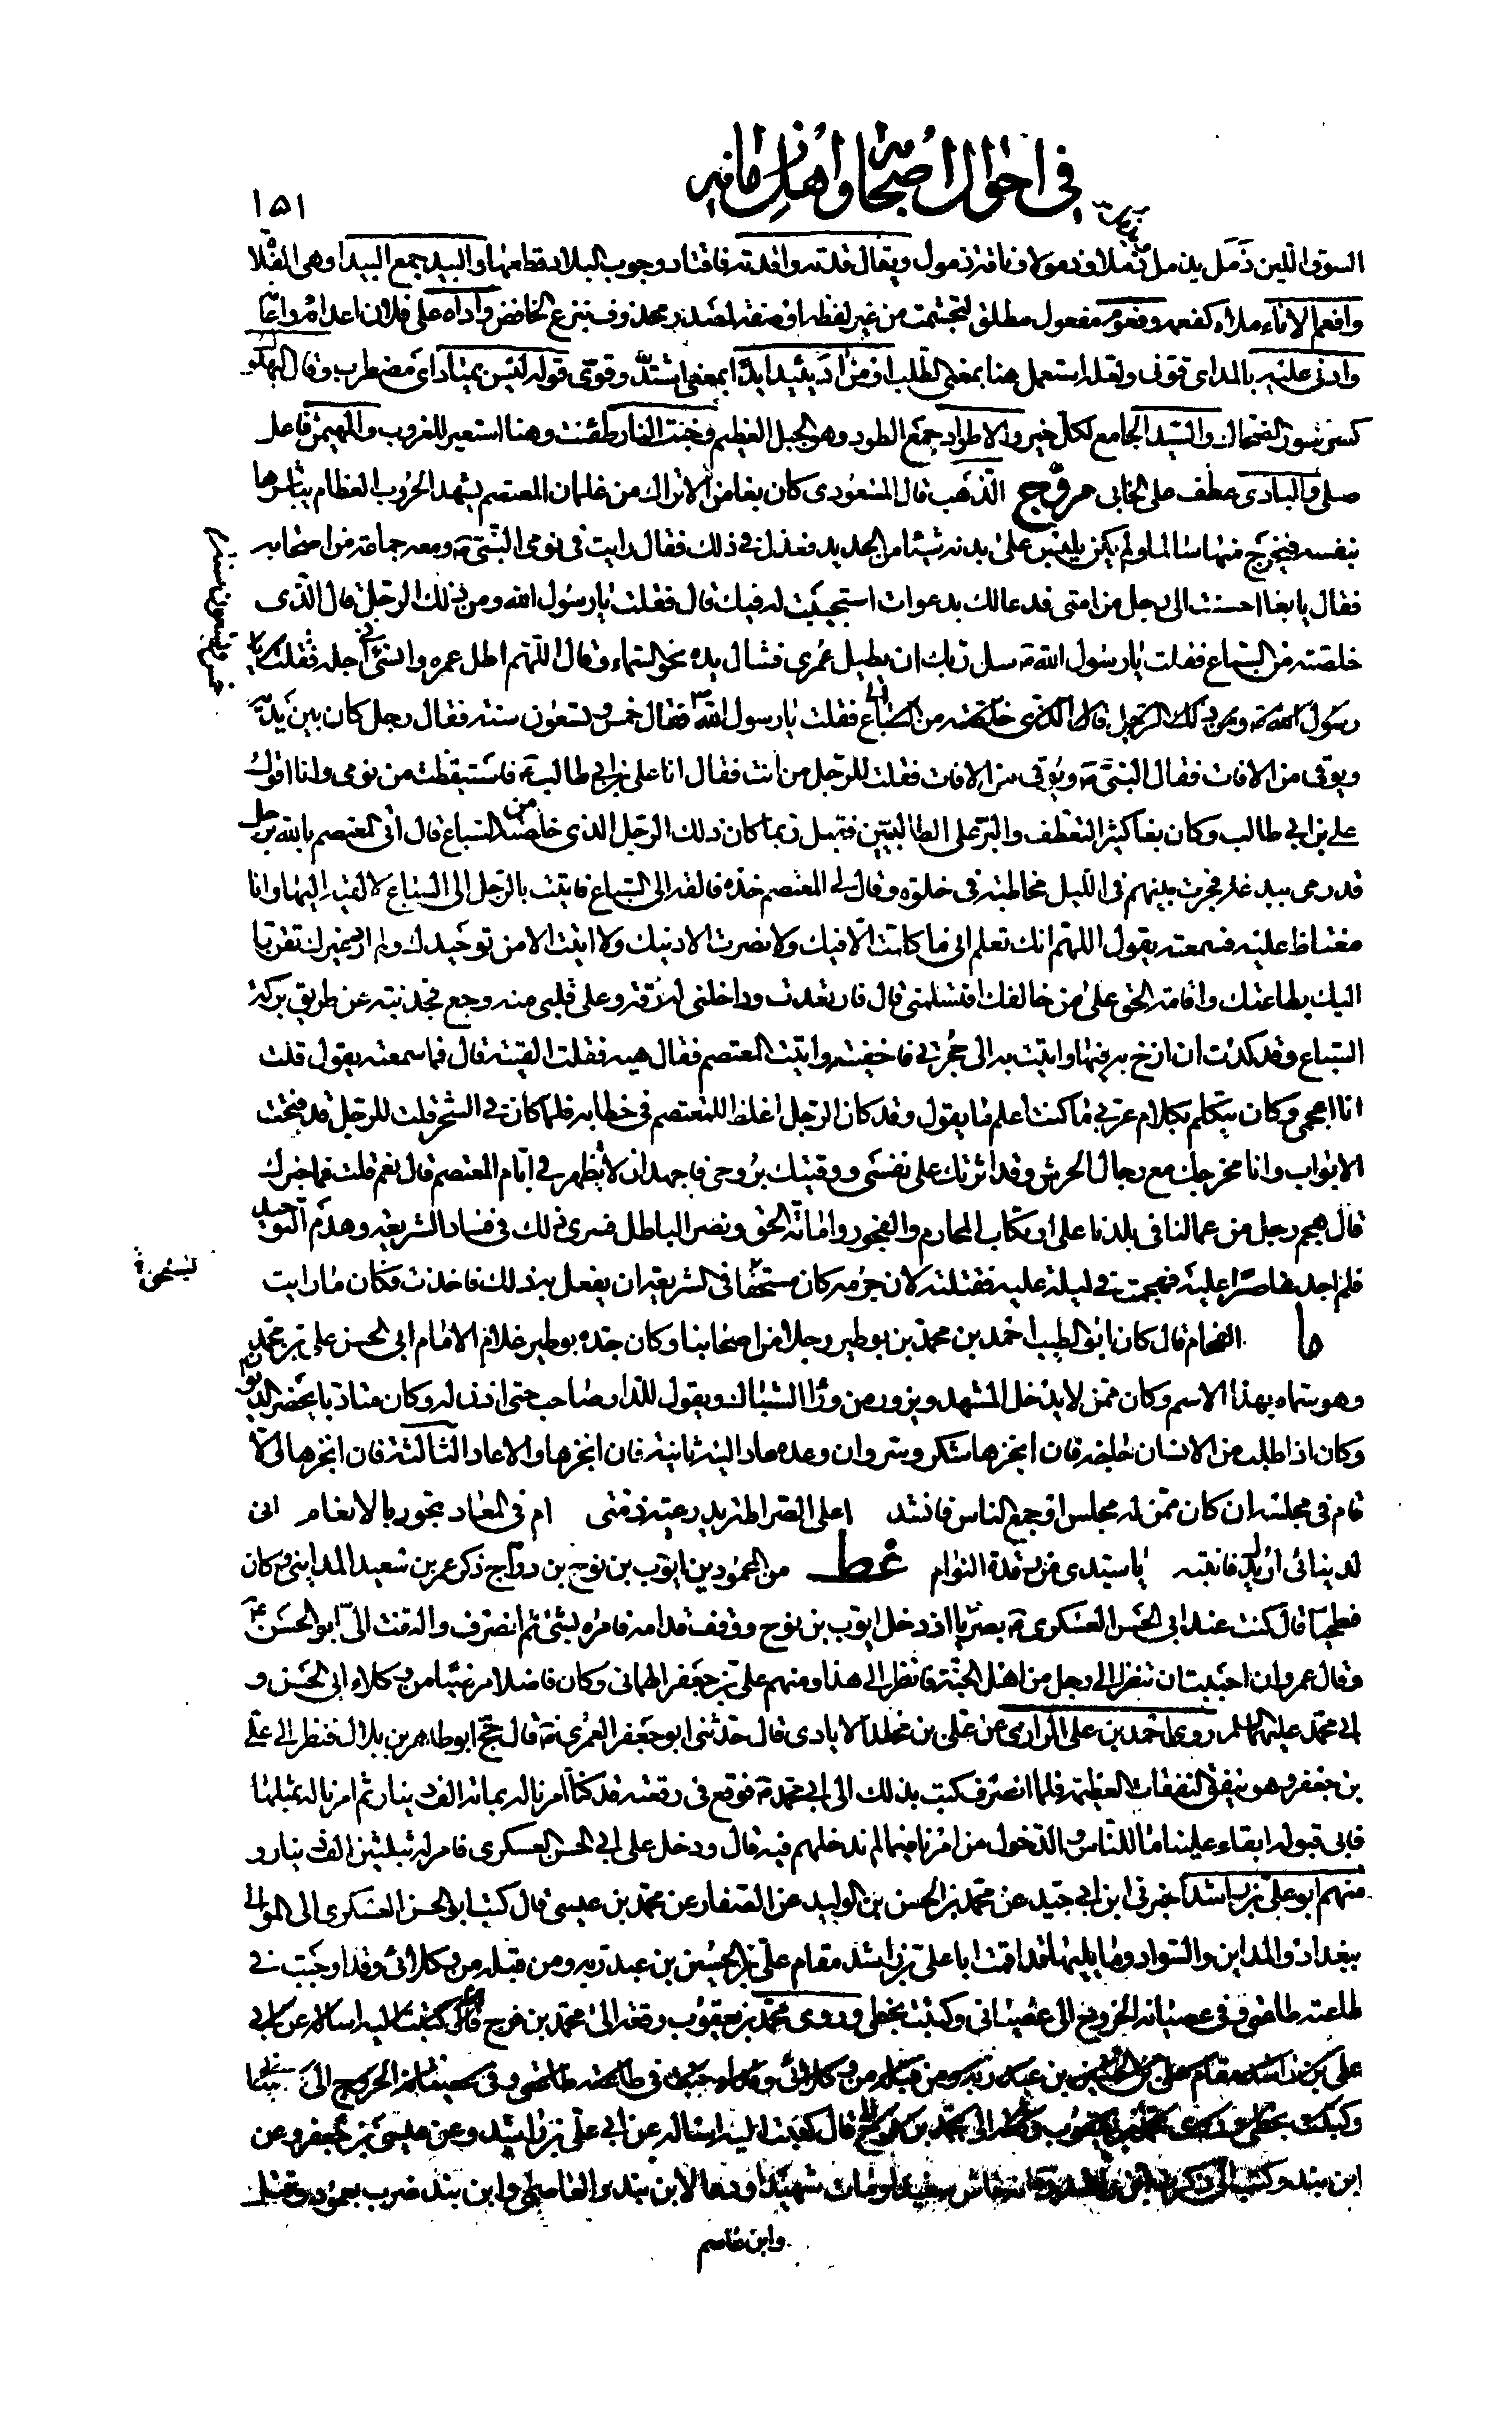 في احوال اصحابه واهل زمانه
١٥١
السوق اللين ذمل يذمل ذملا وذمولا وناقة ذمول ويقال قدته واقتدته فاقتاد وجوب البلاد قطعها والبيد جمع البيداء وهي الفلاة
وافعم الاناء ملأه كفعمه وفعوم مفعول مطلق لتجشمت من غير لفظه او صفة لمصدر محذوف بنزع الخافض وآداه على فلان اعداه واعانه
وادنى عليه بالمد اى قوّنى ولعله استعمل هنا بمعنى الطلب او من اد يئيد ايدا بمعنى اشتد وقوى قوله ليس بمناد اى مضطرب وقال
كسى بسور الضحاك والسيد الجامع لكل خير والاطواد جمع الطود وهو الجبل العظيم وخبت النار طفئت وهنا استعير للغروب والمهيمن فاعل
صلى والبادى عطف على الخابى مروج الذهب قال المسعودى كان بغا من الاتراك من غلمان المعتصم يشهد الحروب العظام يباشرها
بنفسه فيخرج منها سالما ولم يكن يلبس على بدنه شيئا من الحديد فعذل في ذلك فقال رايت في نومى النبيّ ص ومعه جماعة من اصحابه
فقال يا بغا احسنت الى رجل من امتى فدعا لك بدعوات استجيبت له فيك قال فقلت يا رسول الله ومن ذلك الرجل قال الّذى
خلصته من السباع فقلت يا رسول الله ص سل ربك ان يطيل عمرى فشال يده نحو السماء وقال اللّهم اطل عمره وانسئ في اجله فقلت يا
رسول الله ص ومن ذلك الرجل قال الذى خلصته من السباع فقلت يا رسول الله ص فقال خمس وتسعون سنة فقال رجل كان بين يديه
ويوقى من الافات فقال النبيّ ص ويوقى من الافات فقلت للرجل من انت فقال انا على بن ابي طالب ع فاستيقظت من نومى وانا اقول
علي بن ابي طالب وكان بغا كثير التعطف والبر على الطالبيين فقيل له ما كان ذلك الرجل الذى خلصته من السباع قال اتى المعتصم بالله برجل
قد رمى ببدعة فجرت بينهم في الليل مخاطبة في خلوة وقال لي المعتصم خذه فالقه الى السباع فاتيت بالرجل الى السباع لالقيه اليها وانا
مغتاظ عليه فسمعته يقول اللهم انك تعلم انى ما كلمت الا فيك ولا نصرت الا دينك ولا اتيت الا من توحيدك ولم ارد غيرك تقربا
اليك بطاعتك واقامة الحق على من خالفك افتسلمنى قال فارتعدت وداخلنى له رقة وعلى قلبى منه وجع فجذبته عن طريق بركة
السباع وقد كدت ان ازخ به فيها واتيت به الى حجرتي فاخفيته واتيت المعتصم فقال هيه فقلت القيته قال فما سمعته يقول قلت
انا اعجمى وكان يتكلم بكلام عربي ما كنت اعلم ما يقول وقد كان الرجل اغلظ للمعتصم في خطابه فلما كان في السحر قلت للرجل قد فتحت
الابواب وانا مخرجك مع رجال الحرس وقد آثرتك على نفسى ووقيتك بروحى فاجهد ان لا تظهر في ايّام المعتصم قال نعم قلت فما خبرك
قال هجم رجل من عمالنا في بلدنا على ارتكاب المحارم والفجور واماتة الحق ونصر الباطل فسرى ذلك في فساد الشريعة وهدم التوحيد
فلم اجد ناصرا عليه فهجمت في ليلة عليه فقتلته لان جرمه كان مستحقا في الشريعة ان يفعل به ذلك فاخذت فكان ما رايت
ما الفحام قال كان ابو الطيب احمد بن محمد بن بوطير رجلا من اصحابنا وكان جدّه بوطير غلام الامام ابى الحسن على بن محمد
وهو سماه بهذا الاسم وكان ممن لا يدخل المشهد ويزور من وراء الشباك ويقول للدار صاحب حتى اذن له وكان متادبا يحضر الديوان
وكان اذا طلب من الانسان حاجة فان انجزها شكر وسر وان وعده عاد اليه ثانية فان انجزها والا عاد الثالثة فان انجزها والا
قام في مجلسه ان كان ممن له مجلس او جمع الناس فانشد اعلى الصراط تريد رعية ذمتى ام في المعاد تجود بالانعام انى
لدنياى اريدك فانتبه يا سيدى من رقدة النوام غط من المحمودين ايوب بن نوح بن دراج ذكر عمرو بن سعيد المدايني وكان
فطحيا قال كنت عند ابى الحسن العسكرى ع بصريا اذ دخل ايوب بن نوح ووقف قدامه فامره بشئ ثم انصرف والتفت الىّ ابو الحسن ع
وقال يا عمرو ان احببت ان تنظر الى رجل من اهل الجنّة فانظر الى هذا ومنهم على بن جعفر الهمانى وكان فاضلا مرضيّا من وكلاء ابي الحسن و
ابي محمد عليهما السلم روى احمد بن على الرازى عن على بن مخلد الايادى قال حدثنى ابو جعفر العمرى قال حجّ ابو طاهر بن بلال فنظر الى على
بن جعفر وهو ينفق النفقات العظيمة فلما انصرف كتب بذلك الى ابي محمد ع فوقع في رقعته قد كنا امرنا له بمائة الف دينار ثم امرنا له بمثلها
فابى قبوله ابقاء علينا ما للناس والدخول من امرنا فيما لم ندخلهم فيه قال ودخل على ابي الحسن العسكرى فامر له بثلثين الف دينار و
منهم ابو على بن راشد اخبرنى ابن ابي جيّد عن محمد بن الحسن بن الوليد عن الصفار عن محمد بن عيسى قال كتب ابو الحسن العسكرى الى الموالى
ببغداد والمداين والسواد وما يليها قد اقمت ابا على بن راشد مقام على بن الحسين بن عبد ربه ومن قبله من وكلائى وقد اوجبت في
طاعته طاعتى وفي عصيانه الخروج الى عصيانى وكتبت بخطى وروى محمد بن يعقوب رفعه الى محمد بن فرج قال كتبت اليه اساله عن ابي
على بن راشد مقام على بن الحسين بن عبد ربه ومن قبله من وكلائى وقد اوجبت في طاعته طاعتى وفي عصيانه الخروج الى
وكتبت بخطى وروى محمد بن يعقوب رفعه الى محمد بن فرج قال كتبت اليه اساله عن ابي على بن راشد وعن عيسى بن جعفر وعن
ابن بند وكتب الىّ ذكرت ابن راشد فانه عاش سعيدا ومات شهيدا ودعا لابن بند والعاصمى وابن بند ضرب بعمود وقتل
وابن عاصم